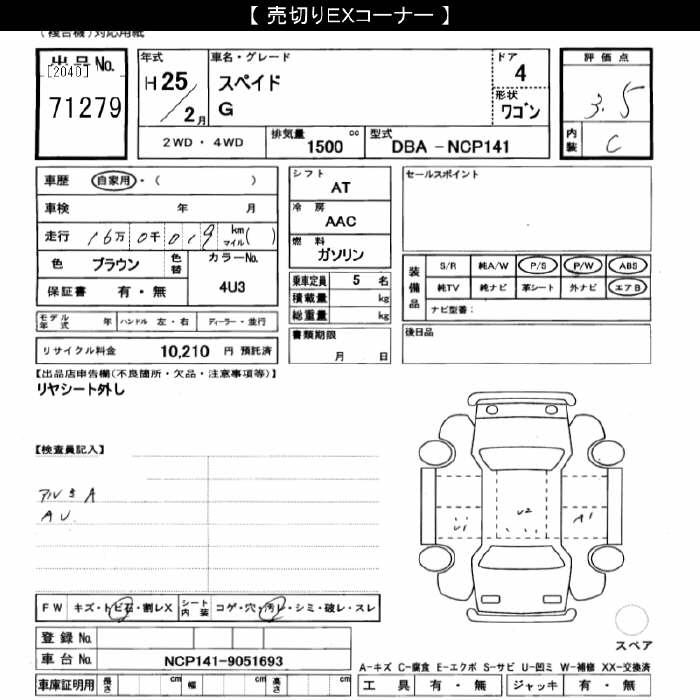 【 売切りEXコーナー 】
(複合機)対応用紙
出品No.
[2040]
71279
年式
H 25 / 2 月
車名・グレード
スペイド
G
ドア
4
形状
ワゴン
評価点
3.5
内装
C
2WD・4WD
排気量
1500 cc
型式
DBA - NCP141
車歴 自家用・( )
車検 年 月
走行 16万 0千 019 km マイル( )
色 ブラウン 色替
カラーNo.
4U3
保証書 有・無
モデル年式 年 ハンドル 左・右 ディーラー・並行
リサイクル料金 10,210 円 預託済
シフト
AT
冷房
AAC
燃料
ガソリン
乗車定員 5 名
積載量 kg
総重量 kg
書類期限
月 日
セールスポイント
装備品
S/R 純A/W P/S P/W ABS
純TV 純ナビ 革シート 外ナビ エアB
ナビ型番:
後日品
【出品店申告欄(不良箇所・欠品・注意事項等)】
リヤシート外し
【検査員記入】
A U
U1
U2
A1
FW キズ・トビ石・割レX シート内装 コゲ・穴・汚レ・シミ・破レ・スレ
登録No.
車台No. NCP141-9051693
車庫証明用 長さ cm 幅 cm 高さ cm
スペア
A-キズ C-腐食 E-エクボ S-サビ U-凹ミ W-補修 XX-交換済
工具 有・無 ジャッキ 有・無